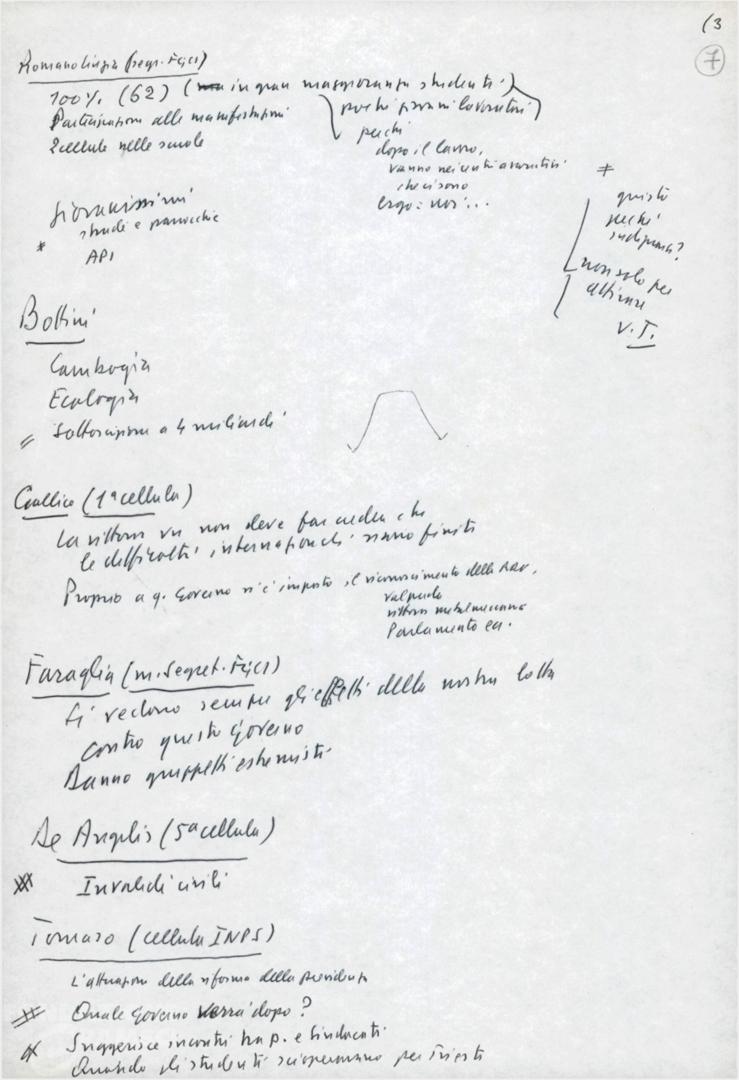 (3
7
Romanolinzia (segr. Fgci)
100% (62) (in gran maggioranza studenti)
pochi giovani lavoratori
Partecipazioni alle manifestazioni
perché
2 cellule nelle scuole
dopo il lavoro,
vanno nei centri ricreativi
che ci sono
ergo: noi...
*
questo
perché
non solo per
V. I.
Giovanissimi
strade e parrocchie
*
API
Bottini
Cambogia
Ecologia
= Sottoscrizione a 4 miliardi
(1ª cellula)
La vittoria VN non deve far credere che
le difficoltà internazionali siano finite
Proprio a q. Governo s'è imposto il riconoscimento della RDV,
valpreda
vittoria metalmeccanici
Parlamento ecc.
Faraglia (m. segret. Fgci)
Si vedono sempre gli effetti della nostra lotta
contro questo Governo
Danno gruppetti estremisti
De Angelis (5ª cellula)
Invalidi civili
Tomaso (cellula INPS)
L'attuazione della riforma della previdenza
Quale Governo verrà dopo?
Suggerisce incontri tra p. e Sindacati
Quando gli studenti scioperarono per Trieste